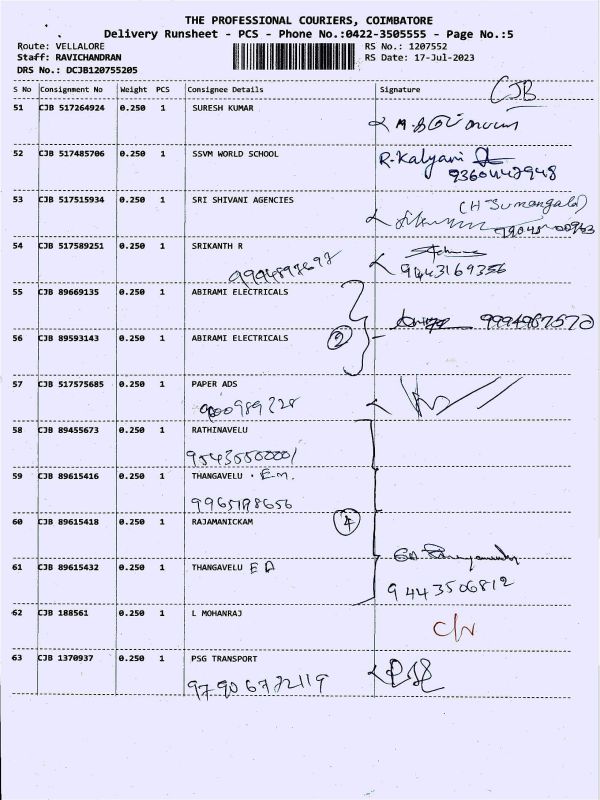 THE PROFESSIONAL COURIERS, COIMBATORE
Delivery Runsheet - PCS - Phone No.:0422-3505555 - Page No.:5
Route: VELLALORE
RS No.: 1207552
Staff: RAVICHANDRAN
RS Date: 17-Jul-2023
DRS No.: DCJB120755205
S No Consignment No Weight PCS Consignee Details Signature
CJB
51 CJB 517264924 0.250 1 SURESH KUMAR
52 CJB 517485706 0.250 1 SSVM WORLD SCHOOL R.Kalyani
9360442948
53 CJB 517515934 0.250 1 SRI SHIVANI AGENCIES
54 CJB 517589251 0.250 1 SRIKANTH R
9443169356
55 CJB 89669135 0.250 1 ABIRAMI ELECTRICALS
56 CJB 89593143 0.250 1 ABIRAMI ELECTRICALS 2
57 CJB 517575685 0.250 1 PAPER ADS
58 CJB 89455673 0.250 1 RATHINAVELU
59 CJB 89615416 0.250 1 THANGAVELU . E.M.
60 CJB 89615418 0.250 1 RAJAMANICKAM 4
61 CJB 89615432 0.250 1 THANGAVELU E A
9443506812
62 CJB 188561 0.250 1 L MOHANRAJ
63 CJB 1370937 0.250 1 PSG TRANSPORT